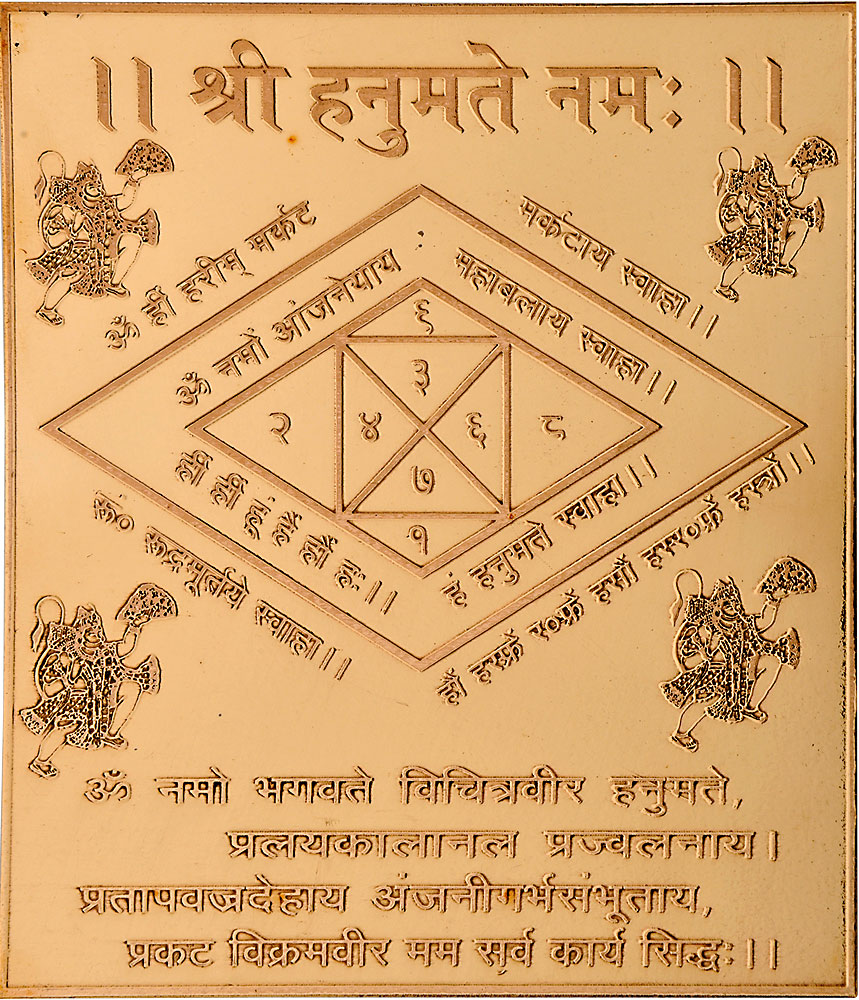 ।। श्री हनुमते नमः ।।
ॐ ह्रीं हरीम् मर्कट
मर्कटाय स्वाहा।।
ॐ नमो आंजनेयाय
महाबलाय स्वाहा।।
६
३
२ ४ ६ ८
७
१
ह्रीं ह्रीं ह्रूं ह्रैं ह्रौं ह्रः।।
हनुमते स्वाहा।।
रूं० रूद्रमूर्तये स्वाहा।।
हस्फ्रें
ॐ नमो भगवते विचित्रवीर हनुमते,
प्रलयकालानल प्रज्वलनाय।
प्रतापवज्रदेहाय अंजनीगर्भसंभूताय,
प्रकट विक्रमवीर मम सर्व कार्य सिद्धः।।